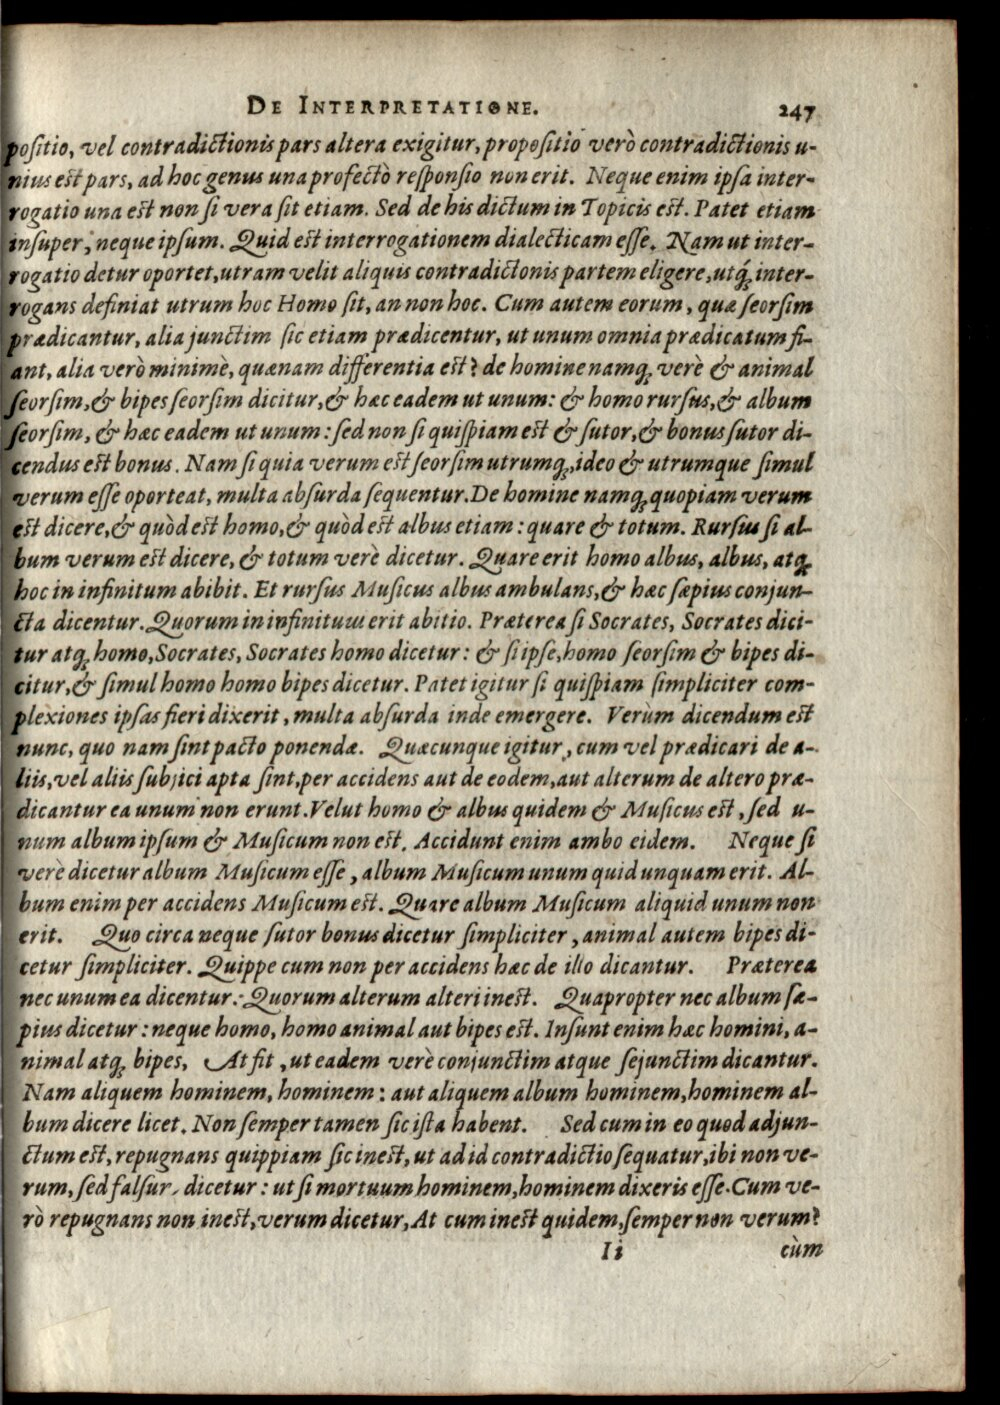 DE INTERPRETATIONE. 247
positio, vel contradictionis pars altera exigitur, propositio verò contradictionis u-
nius est pars, ad hoc genus una profectò responsio non erit. Neque enim ipsa inter-
rogatio una est non si vera sit etiam. Sed de his dictum in Topicis est. Patet etiam
insuper, neque ipsum. Quid est interrogationem dialecticam esse. Nam ut inter-
rogatio detur oportet, utram velit aliquis contradictonis partem eligere, utq́; inter-
rogans definiat utrum hoc Homo sit, an non hoc. Cum autem eorum, quæ seorsim
prædicantur, alia junctim sic etiam prædicentur, ut unum omnia prædicatum fi-
ant, alia verò minimè, quænam differentia est? de homine namq; verè & animal
seorsim, & bipes seorsim dicitur, & hæc eadem ut unum: & homo rursus, & album
seorsim, & hæc eadem ut unum: sed non si quispiam est & sutor, & bonus sutor di-
cendus est bonus. Nam si quia verum est seorsim utrumq;, ideo & utrumque simul
verum esse oporteat, multa absurda sequentur. De homine namq; quopiam verum
est dicere, & quòd est homo, & quòd est albus etiam: quare & totum. Rursus si al-
bum verum est dicere, & totum verè dicetur. Quare erit homo albus, albus, atq;
hoc in infinitum abibit. Et rursus Musicus albus ambulans, & hæc sæpius conjun-
cta dicentur. Quorum in infinitum erit abitio. Præterea si Socrates, Socrates dici-
tur atq; homo, Socrates, Socrates homo dicetur: & si ipse, homo seorsim & bipes di-
citur, & simul homo homo bipes dicetur. Patet igitur si quispiam simpliciter com-
plexiones ipsas fieri dixerit, multa absurda inde emergere. Verùm dicendum est
nunc, quo nam sint pacto ponendæ. Quæcunque igitur, cum vel prædicari de a-
liis, vel aliis subjici apta sint, per accidens aut de eodem, aut alterum de altero præ-
dicantur ea unum non erunt. Velut homo & albus quidem & Musicus est, sed u-
num album ipsum & Musicum non est. Accidunt enim ambo eidem. Neque si
verè dicetur album Musicum esse, album Musicum unum quid unquam erit. Al-
bum enim per accidens Musicum est. Quare album Musicum aliquid unum non
erit. Quo circa neque sutor bonus dicetur simpliciter, animal autem bipes di-
cetur simpliciter. Quippe cum non per accidens hæc de illo dicantur. Præterea
nec unum ea dicentur. Quorum alterum alteri inest. Quapropter nec album sæ-
pius dicetur: neque homo, homo animal aut bipes est. Insunt enim hæc homini, a-
nimal atq; bipes, At fit, ut eadem verè conjunctim atque sejunctim dicantur.
Nam aliquem hominem, hominem: aut aliquem album hominem, hominem al-
bum dicere licet. Non semper tamen sic ista habent. Sed cum in eo quod adjun-
ctum est, repugnans quippiam sic inest, ut ad id contradictio sequatur, ibi non ve-
rum, sed falsum dicetur: ut si mortuum hominem, hominem dixeris esse. Cum ve-
rò repugnans non inest, verum dicetur, At cum inest quidem, semper non verum?
Ii cùm